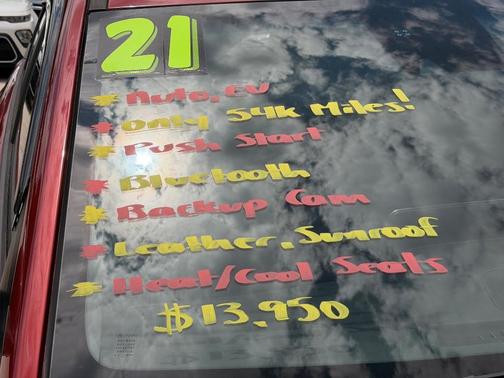 21
* Auto, EV
* Only 54k Miles!
* Push Start
* Bluetooth
* Backup Cam
* Leather, Sunroof
* Heat/Cool Seats
$13,950